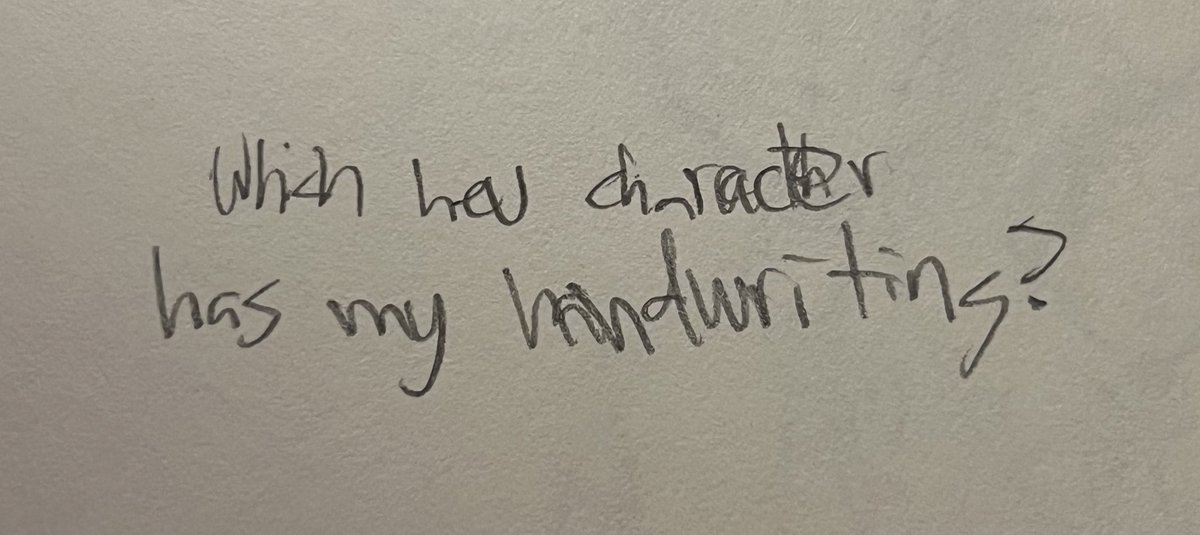 Which hev character
has my handwriting?